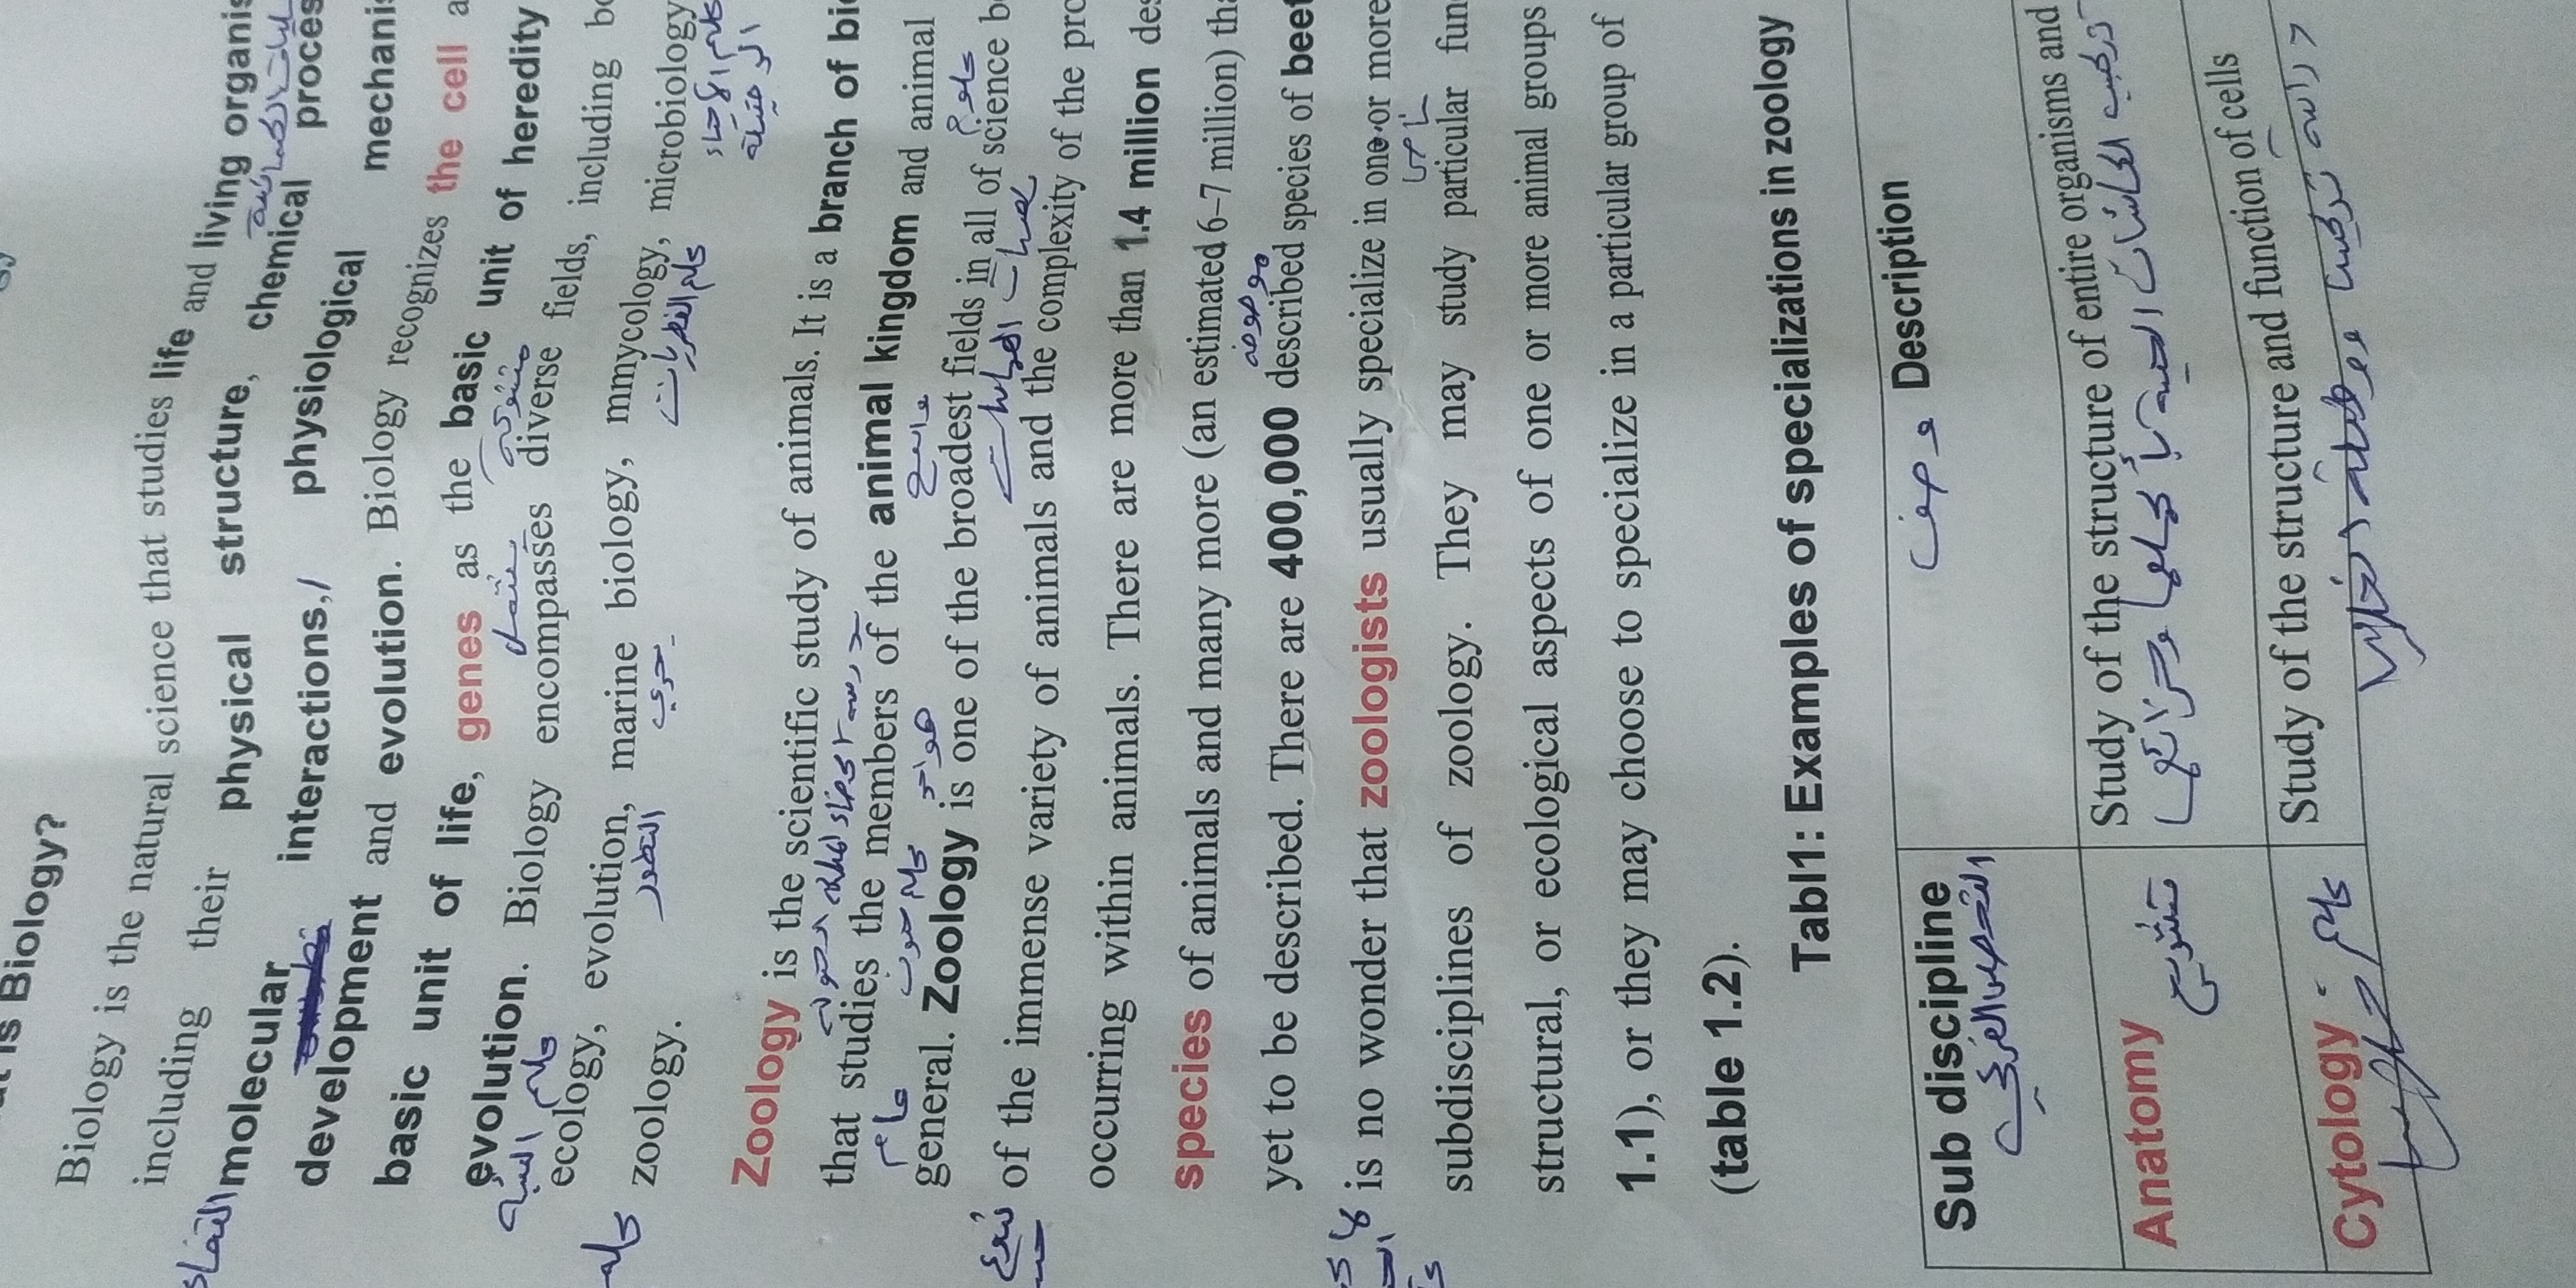 is Biology?
Biology is the natural science that studies life and living organis
including their physical structure, chemical proces
molecular interactions, physiological mechanis
development and evolution. Biology recognizes the cell a
basic unit of life, genes as the basic unit of heredity
يشمل
evolution. Biology encompasses diverse fields, including bo
علم البيئة
ecology, evolution, marine biology, mmycology, microbiology
التطور بحري علم الفطريات علم الأحياء
zoology.
Zoology is the scientific study of animals. It is a branch of bio
that studies the members of the animal kingdom and animal
عام علم واسع علوم
general. Zoology is one of the broadest fields in all of science be
العمليات
of the immense variety of animals and the complexity of the pro
occurring within animals. There are more than 1.4 million des
species of animals and many more (an estimated 6–7 million) tha
موصوفة
yet to be described. There are 400,000 described species of beet
is no wonder that zoologists usually specialize in one or more
خاص
subdisciplines of zoology. They may study particular fun
structural, or ecological aspects of one or more animal groups
1.1), or they may choose to specialize in a particular group of
(table 1.2).
Tabl1: Examples of specializations in zoology
Sub discipline Description
التخصص الفرعي وصف
Anatomy Study of the structure of entire organisms and
تشريح تركيب الكائنات الحية بأكملها وأجزائها
Cytology Study of the structure and function of cells
علم دراسة تركيب ووظيفة الخلايا